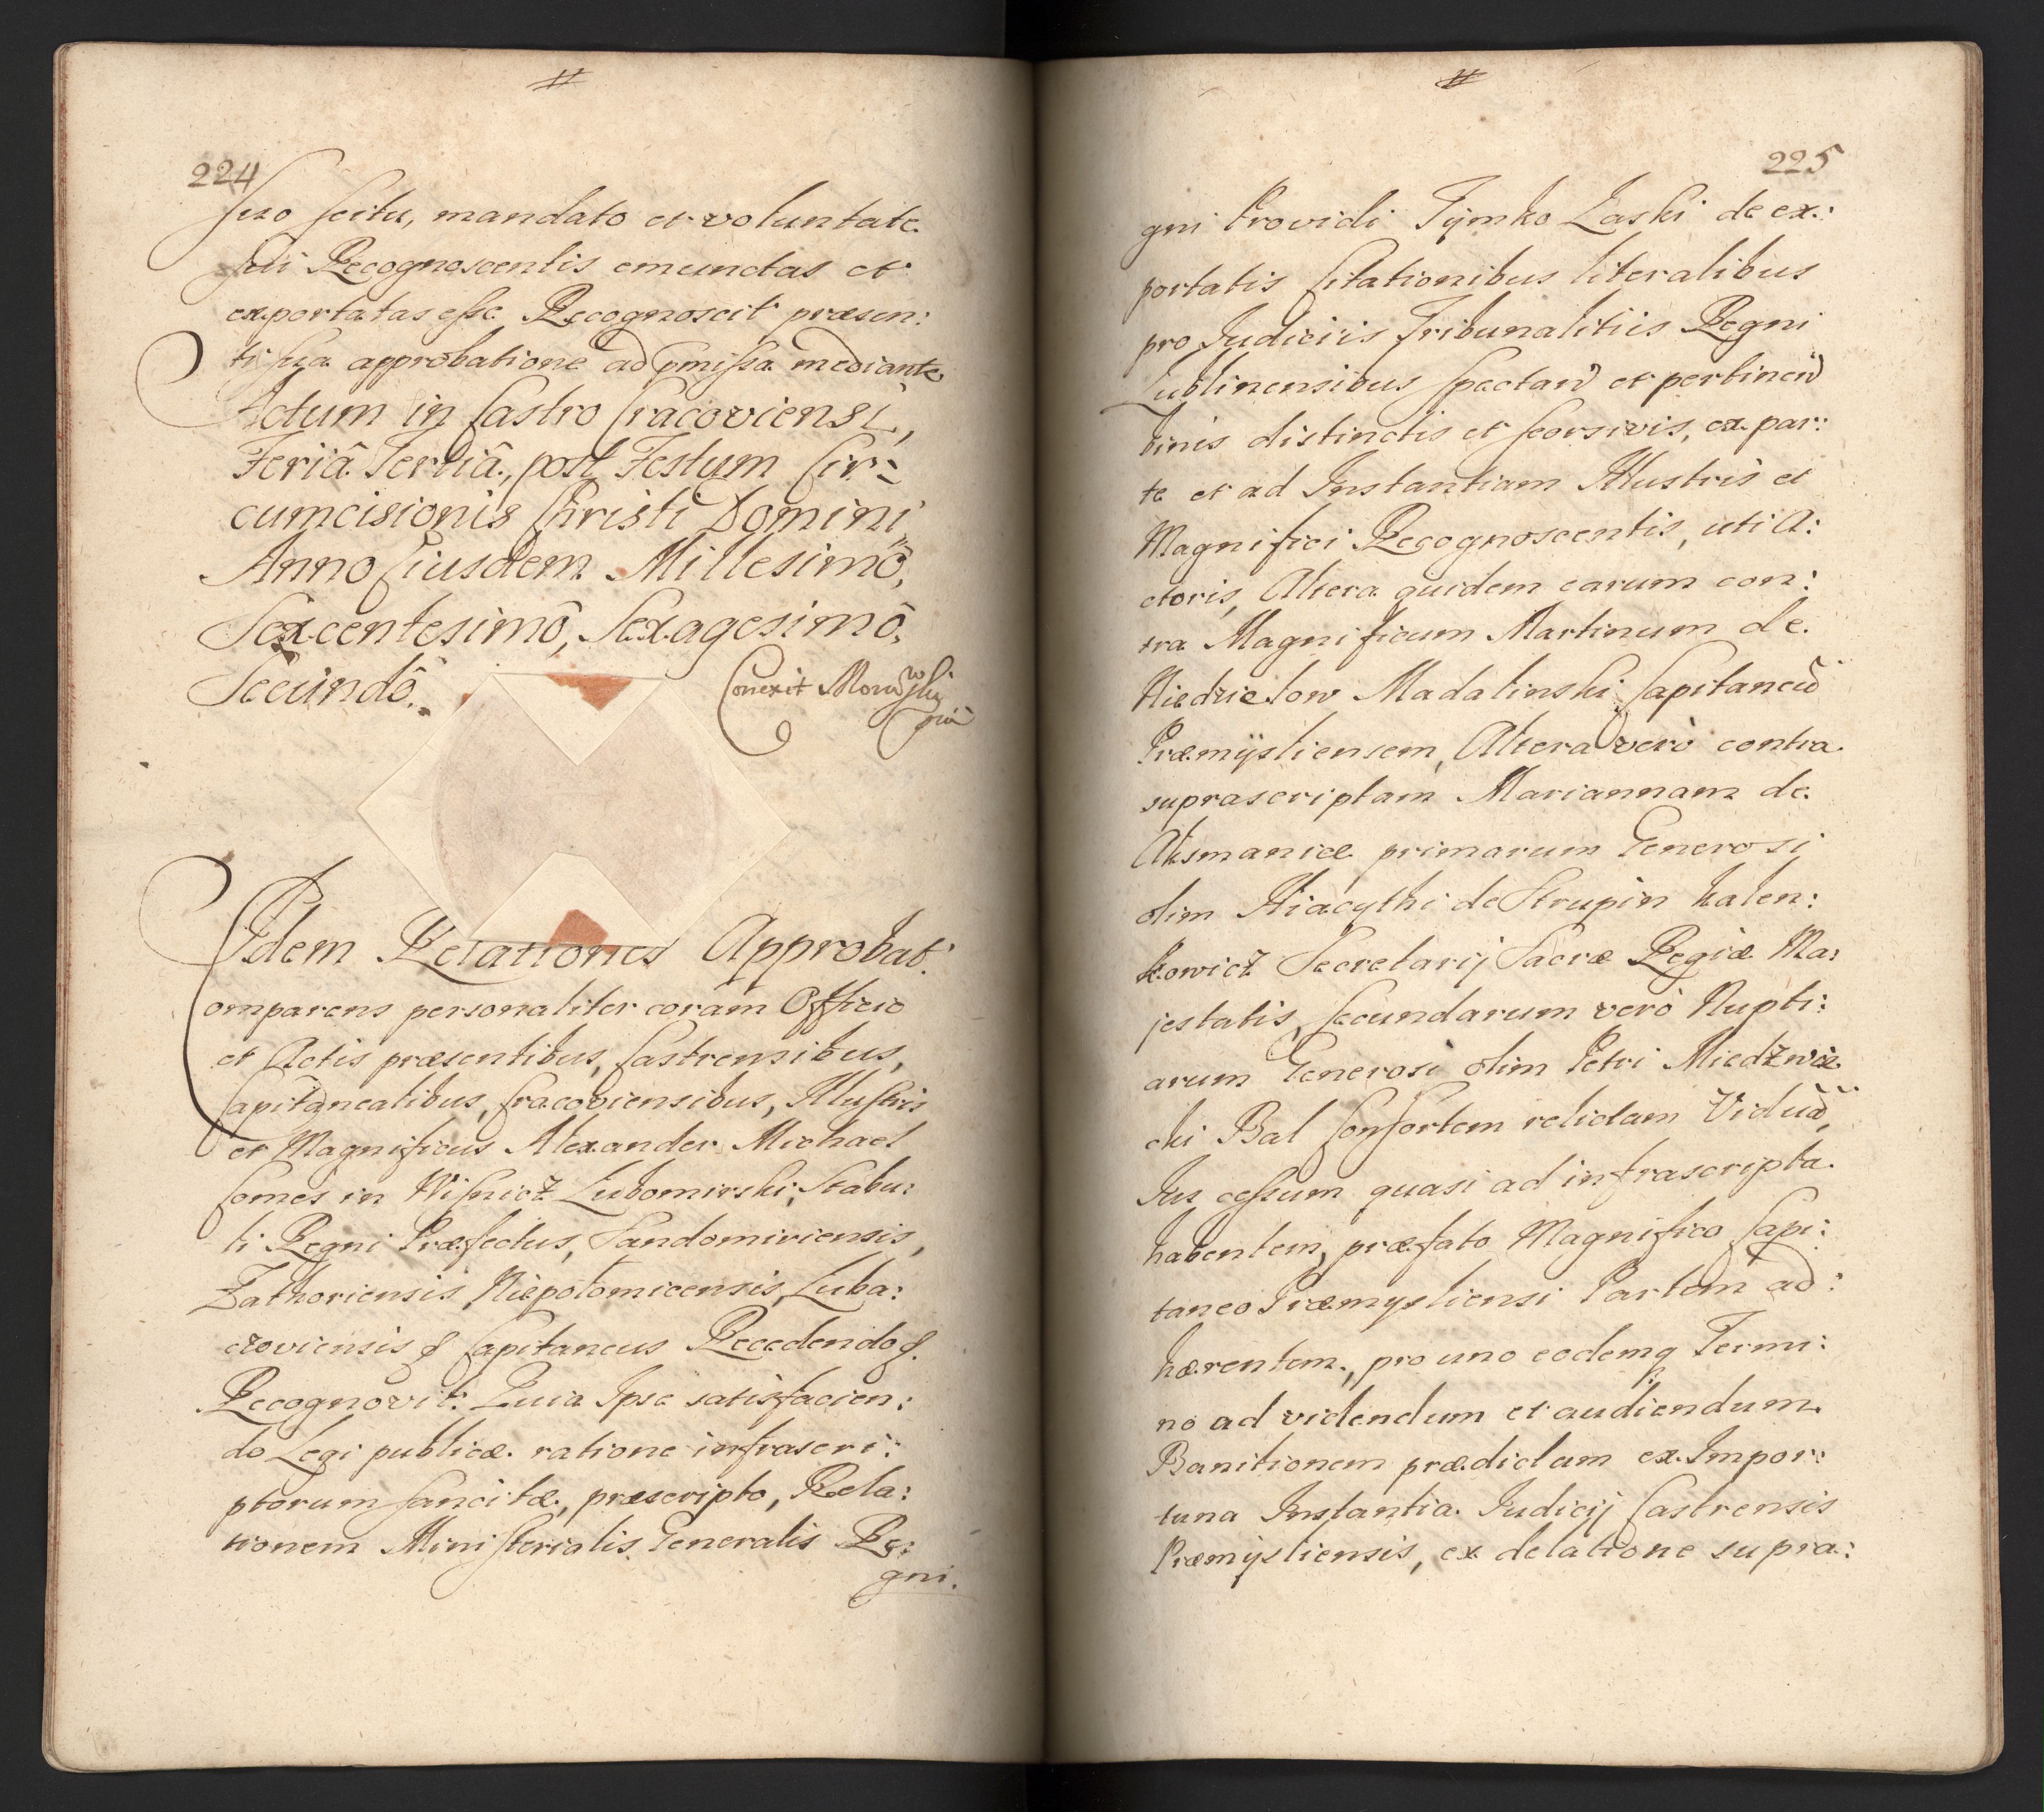 224
suo scitu, mandato et voluntate
sui Recognoscentis emunctas et
exportatas esse Recognoscit præsen:
ti sua approbatione ad pmissa mediante
Actum in Castro Cracoviensi,
Feriâ Tertiâ, post Festum Cir:
cumcisionis Christi Domini
Anno Eiusdem Millesimô,
Sexcentesimô, Sexagesimô,
Secundô.
Conexit
Idem Relationes Approbat.
omparens personaliter coram Officio
et Actis præsentibus, Castrensibus,
Capitanealibus, Cracoviensibus, Illustris
et Magnificus Alexander Michael
Comes in Wisnicz Lubomirski, Stabu:
li Regni Præfectus, Sandomiriensis,
Zathoriensis Niepołomicensis, Luba:
czoviensis & Capitaneus Recedendo &.
Recognovit. Quia Ipse satisfacien:
do Legi publicæ ratione infrascri:
ptorum sancitæ, præscripto, Rela:
tionem Ministerialis Generalis Re:
gni.
225
gni Providi Tÿmko Łaski de ex:
portatis Citationibus literalibus
pro Judiciis Tribunalitiis Regni
Lublinensibus spectan et pertinen
binis distinctis et seorsivis, ex par:
te et ad Instantiam Illustris et
Magnifici Recognoscentis, uti A:
ctoris, Altera quidem earum con:
tra Magnificum Martinum de
Niedzielow Madalinski Capitaneu
Præmÿsliensem, Altera verò contra
suprascriptam Mariannam de
Aksmanice primarum Generosi
olim Hiacythi de Strupin Kalen:
kowicz Secretarij Sacræ Regiæ Ma:
jestatis, secundarum verò Nupti:
arum Generosi olim Petri Miedzwie
cki Bal Consortem relictam Vidua,
Jus cessum quasi ad infrascripta
habentem, præfato Magnifico Capi:
taneo Præmysliensi Partem ad:
hærentem, pro uno eodemq Termi:
no ad videndum et audiendum
Banitionem prædictam ex Impor:
tuna Instantia Judicij Castrensis
Præmÿsliensis, ex delatione supra: